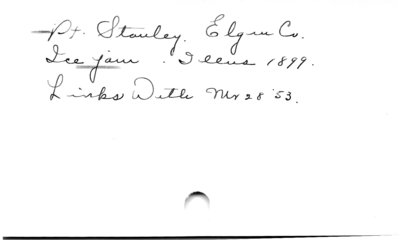 Pt. Stanley, Elgin Co.
Ice jam. Illus 1899.
Links With Mr 28 '53.